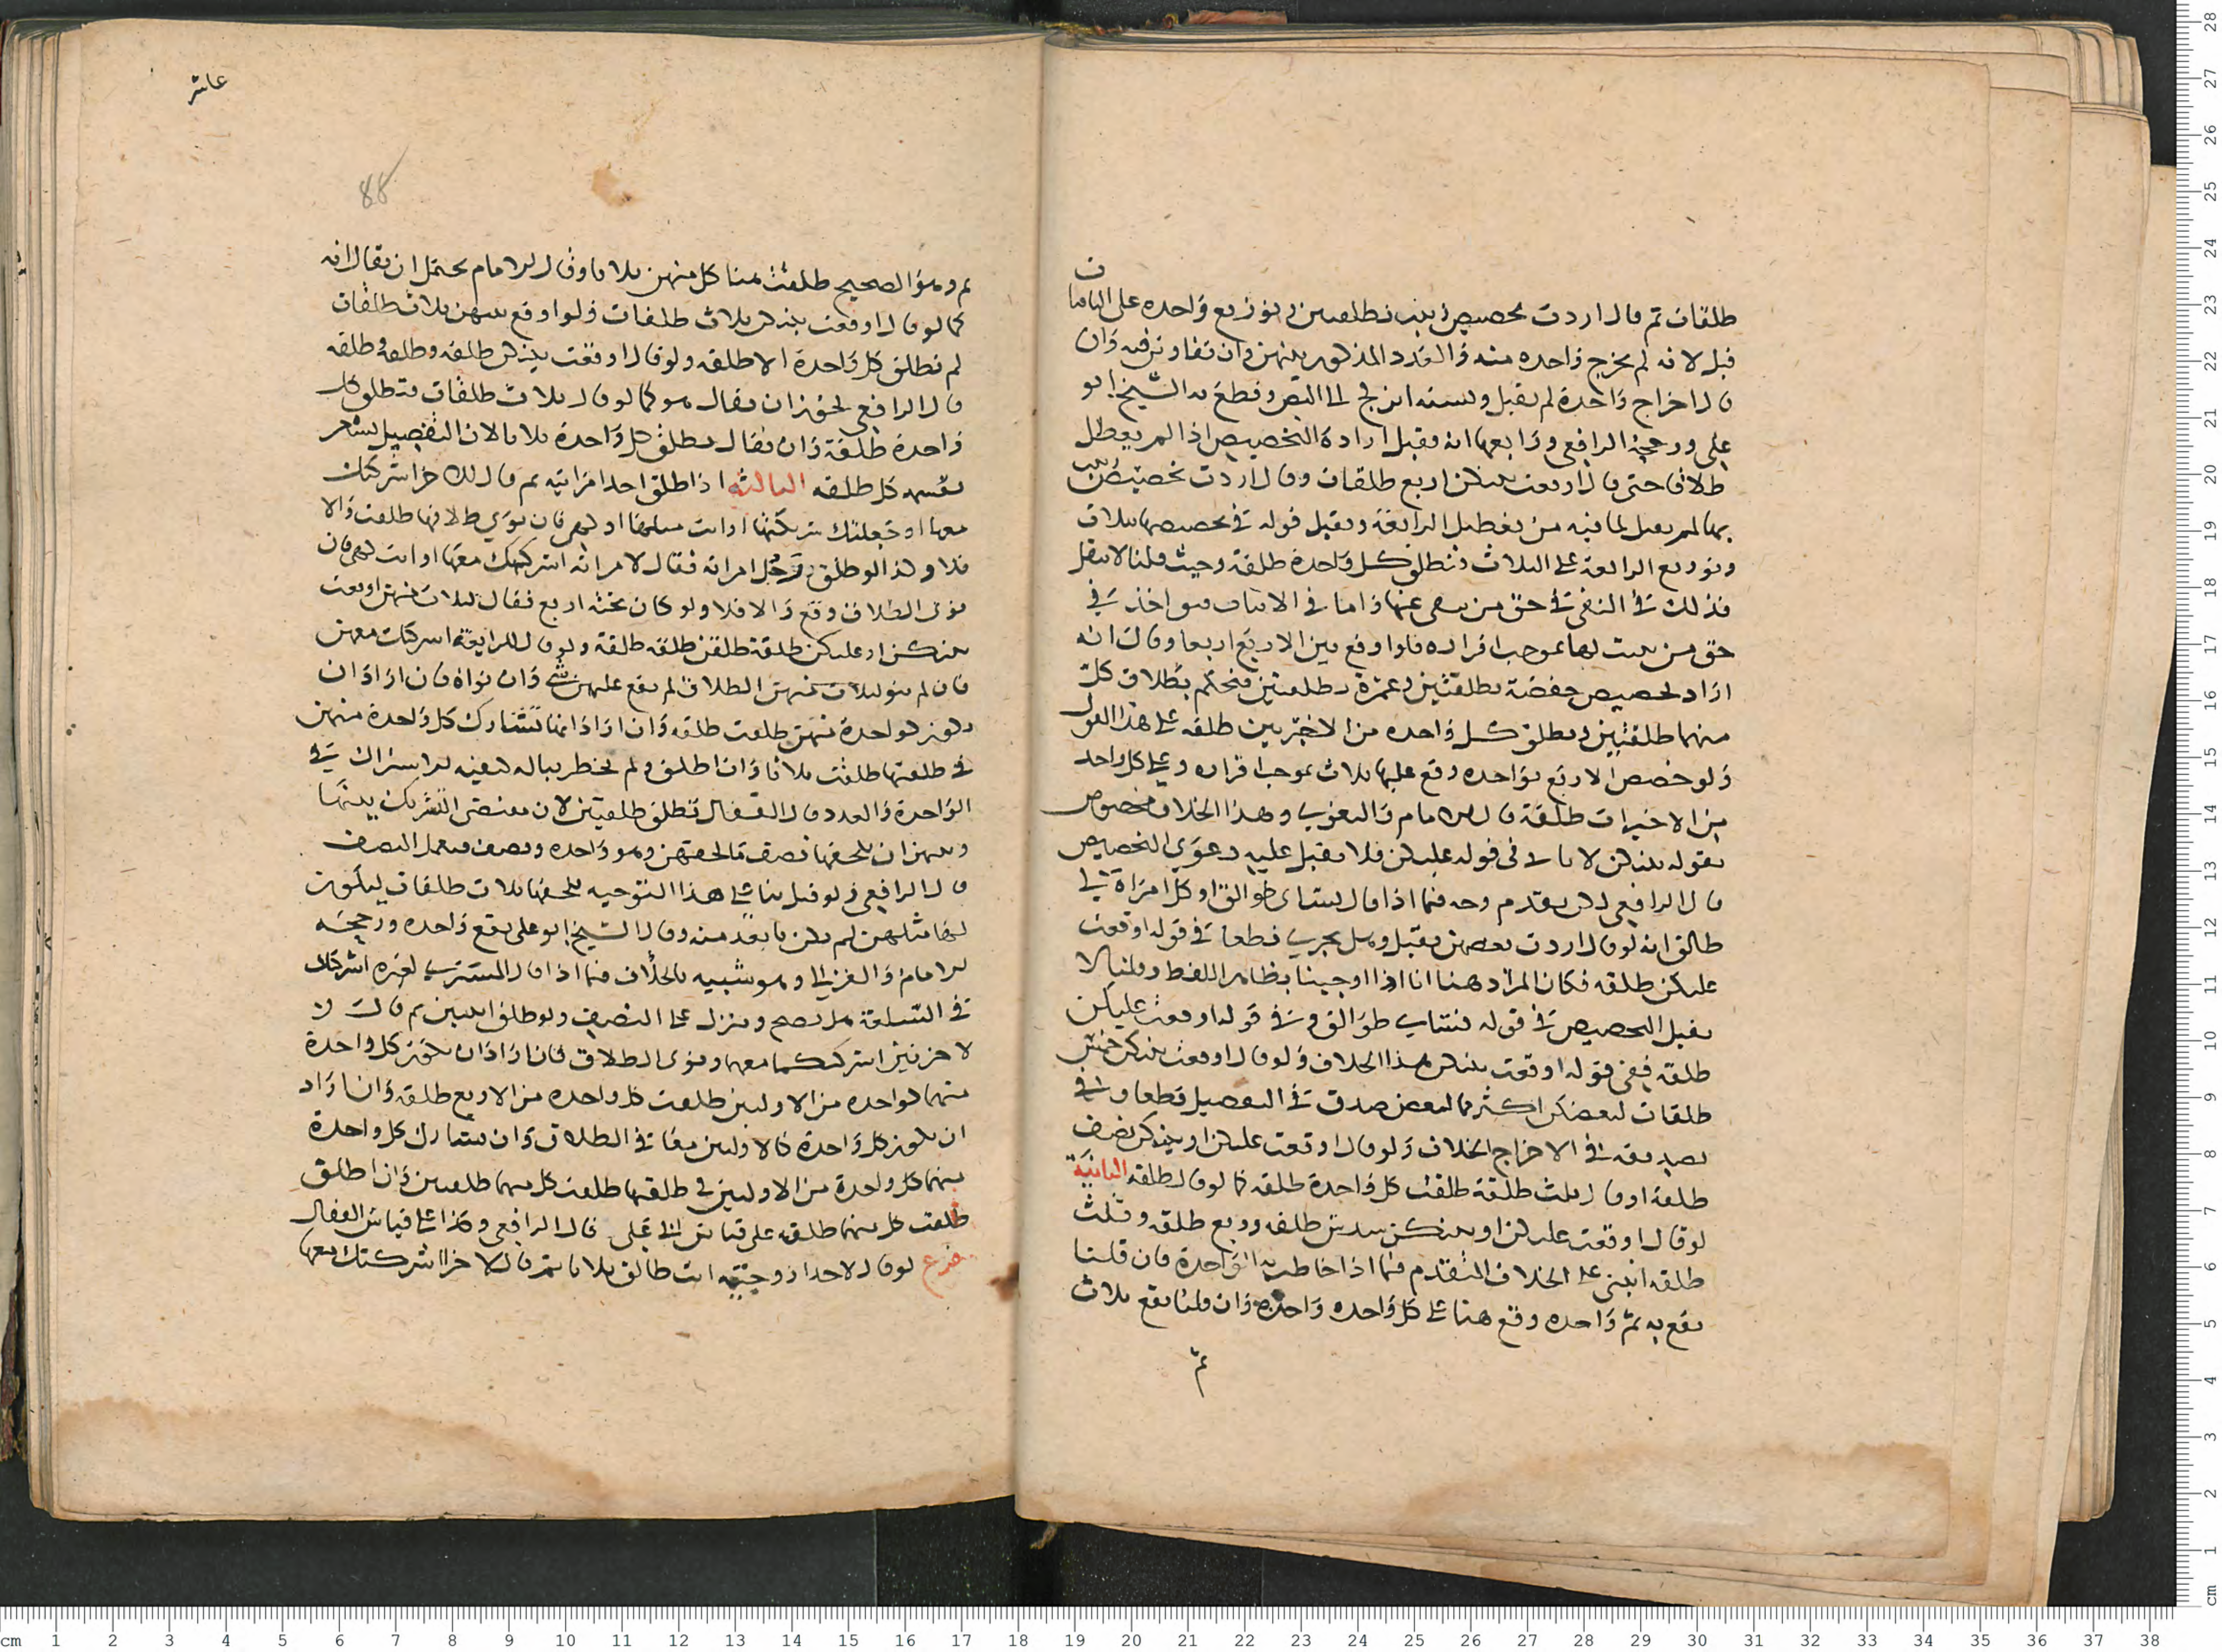 طلقات ثم قال اردت تخصيص زينب بطلقتين وتوزيع واحده على الباقيات
قبل لانه لم يخرج واحده منه والعدد المذكور بينهن وان تفاوتن فيه وان
قال اخراج واحدة لم يقبل ونسبه ابن كج الى النص وقطع به الشيخ ابو
على ورجحه الرافعي ورابعها انه يقبل ارادة التخصيص اذا لم يعطل
طلاقا حتى قال اوقعت بينكن اربع طلقات وقال اردت تخصيص زينب
بها لم يقبل لما فيه من تعطيل الرابعة ويقبل قوله في تخصيصها بثلاث
وتوزيع الرابعة على الثلاث فتطلق كل واحدة طلقة وحيث قلنا لا يقبل
فذلك في النفي في حق من ينفى عنها واما في الاثبات فيواخذ في
حق من يثبت لها بموجب اقراره فلو اوقع بين الاربع اربعا وقال انه
اراد تخصيص حفصة بطلقتين وعمرة بطلقتين فنحكم بطلاق كل
منهما طلقتين وتطلق كل واحده من الاخريين طلقه على هذا القول
ولو خصص الاربع بواحده وقع عليها ثلاث بموجب اقراره وعلى كل واحد
من الاخيرات طلقة قال الامام والبغوي وهذا الخلاف مخصوص
بقوله بينكن لا يأتى في قوله عليكن فلا يقبل عليه دعوى التخصيص
قال الرافعي لكن يقدم وجه فيما اذا قال نسائى طوالق او كل امراة لي
طالق انه لو قال اردت بعضهن يقبل وهل يجري قطعا في قوله اوقعت
عليكن طلقه فكان المراد هنا انا اذا اوجبنا بظاهر اللفظ وقلنا لا
يقبل التخصيص في قوله نسائي طوالق وفي قوله اوقعت عليكن
طلقه ففي قوله اوقعت بينكن هذا الخلاف ولو قال اوقعت بينكن خمس
طلقات لبعضكن اكثر مما لبعض صدق في التفصيل قطعا وفي
تصديقه في الاخراج الخلاف ولو قال اوقعت عليكن او بينكن نصف
طلقة او قال ثلث طلقة طلقت كل واحدة طلقه كما لو قال طلقه الثانية
لو قال اوقعت عليكن او بينكن سدس طلقه وربع طلقه وثلث
طلقه انبنى على الخلاف المتقدم فيما اذا خاطب به الواحدة فان قلنا
يقع به ثم واحده وقع هنا على كل واحده واحده وان قلنا يقع ثلاث
ثم
عاشر
88
ثم وهو الصحيح طلقت هنا كل منهن ثلاثا وقال الامام يحتمل ان يقال انه
كما لو قال اوقعت بينكن ثلاث طلقات ولو اوقع بينهن ثلاث طلقات
لم تطلق كل واحدة الا طلقه ولو قال اوقعت بينكن طلقه وطلقه وطلقه
قال الرافعي يجوز ان يقال هو كما لو قال ثلاث طلقات فتطلق كل
واحدة طلقة وان يقال تطلق كل واحدة ثلاثا لان التفصيل يشعر
بقسمه كل طلقه الثالثه اذا طلق احد امراتيه ثم قال للاخرى اشركتك
معها او جعلتك شريكتها او انت مثلها او كهي فان نوي طلاقها طلقت والا
فلا وكذا لو طلق رجل امراته فقال لامراته اشركتك معها او انت كهي فان
نوى الطلاق وقع والا فلا ولو كان تحته اربع فقال لثلاث منهن اوقعت
بينكن او عليكن طلقة طلقن طلقه طلقة ولو قال للرابعة اشركتك معهن
فان لم ينو بثلاث منهن الطلاق لم يقع عليهن شي وان نواه فان اراد ان
تكون كواحدة منهن طلقت طلقه وان اراد انها تشارك كل واحدة منهن
في طلقتها طلقت ثلاثا وان اطلق ولم يخطر بباله كيفيه الاشتراك في
الواحدة والعدد قال القفال تطلق طلقتين لان مقتضى التشريك بينها
وبينهن ان يلحقها نصف ما لحقهن وهو واحده ونصف فيكمل النصف
قال الرافعي ولو قيل بناء على هذا التوجيه يلحقها ثلاث طلقات ليكون
لها مثلهن لم يكن بابعد منه وقال الشيخ ابو على يقع واحده ورجحه
الامام والغزالي وهو شبيه بالخلاف فيما اذا قال المشتري لغيره اشركتك
في السلعة هل يصح وينزل على النصف ولو طلق اثنتين ثم قال
لاخرتين اشركتكما معهما ونوى الطلاق فان اراد ان تكون كل واحدة
منهما كواحده من الاوليين طلقت كل واحده من الاربع طلقه وان اراد
ان تكون كل واحدة كالاوليين معا في الطلاق وان تشارك كل واحدة
منهما كل واحدة من الاوليين في طلقتها طلقت كل منهما طلقتين وان اطلق
طلقت كل منهما طلقه على قياس ابي على قال الرافعي وكذا على قياس القفال
فرع لو قال لاحدى زوجتيه انت طالق ثلاثا ثم قال للاخرى اشركتك معها